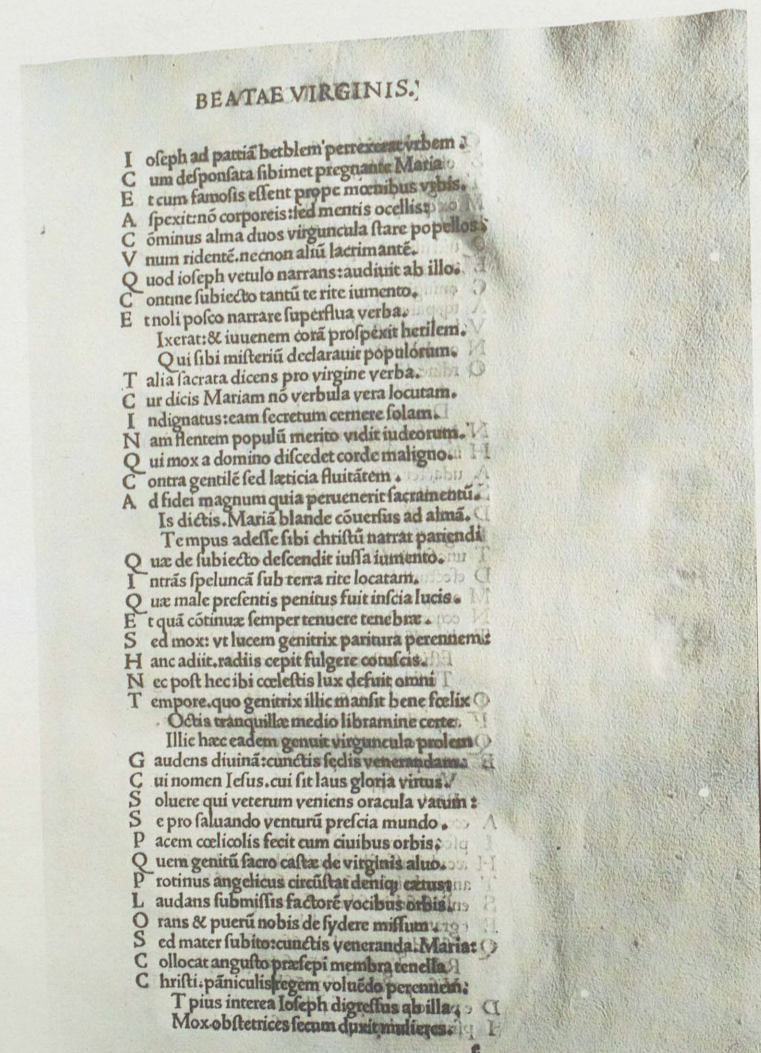 BEATAE VIRGINIS.
Ioseph ad patriã bethlem perrexerat vrbem.
Cum desponsata sibimet pregnante Maria
Et cum famosis essent prope mœnibus vrbis.
Aspexit:nõ corporeis:sed mentis ocellis:
Cõminus alma duos virguncula stare popellos
Vnum ridentẽ.necnon aliũ lacrimantẽ.
Quod ioseph vetulo narrans:audiuit ab illo.
Contine subiecto tantũ te rite iumento.
Et noli posco narrare superflua verba.
Ixerat:& iuuenem corã prospexit herilem.
Qui sibi misteriũ declarauit populorum.
Talia sacrata dicens pro virgine verba.
Cur dicis Mariam nõ verbula vera locutam.
Indignatus:eam secretum cernere solam.
Nam flentem populũ merito vidit iudeorum.
Qui mox a domino discedet corde maligno.
Contra gentilẽ sed læticia fluitãtem.
Ad fidei magnum quia peruenerit sacramentũ.
Is dictis.Mariã blande cõuersus ad almã.
Tempus adesse sibi christũ narrat pariendi
Quæ de subiecto descendit iussa iumento.
Intrãs speluncã sub terra rite locatam.
Quæ male presentis penitus fuit inscia lucis.
Et quã cõtinuæ semper tenuere tenebræ.
Sed mox: vt lucem genitrix paritura perennem:
Hanc adiit.radiis cepit fulgere coruscis.
Nec post hec ibi cœlestis lux defuit omni
Tempore.quo genitrix illic mansit bene fœlix
Octis tranquillæ medio libramine certe.
Illic hæc eadem genuit virguncula prolem
Gaudens diuinã:cunctis sedis venerandam.
Cui nomen Iesus.cui sit laus gloria virtus.
Soluere qui veterum veniens oracula vatum:
Se pro saluando venturũ prescia mundo.
Pacem cœlicolis fecit cum ciuibus orbis:
Quem genitũ sacro castæ de virginis aluo.
Protinus angelicus circũstat deniqꝫ cœtus:
Laudans submissis factorẽ vocibus orbis.
Orans & puerũ nobis de sydere missum.
Sed mater subito:cunctis veneranda.Maria:
Collocat angusto præsepi membra tenella
Christi.pãniculis regem voluẽdo perennem:
T pius interea Ioseph digressus ab illa.
Mox obstetrices secum duxit mulieres.
e